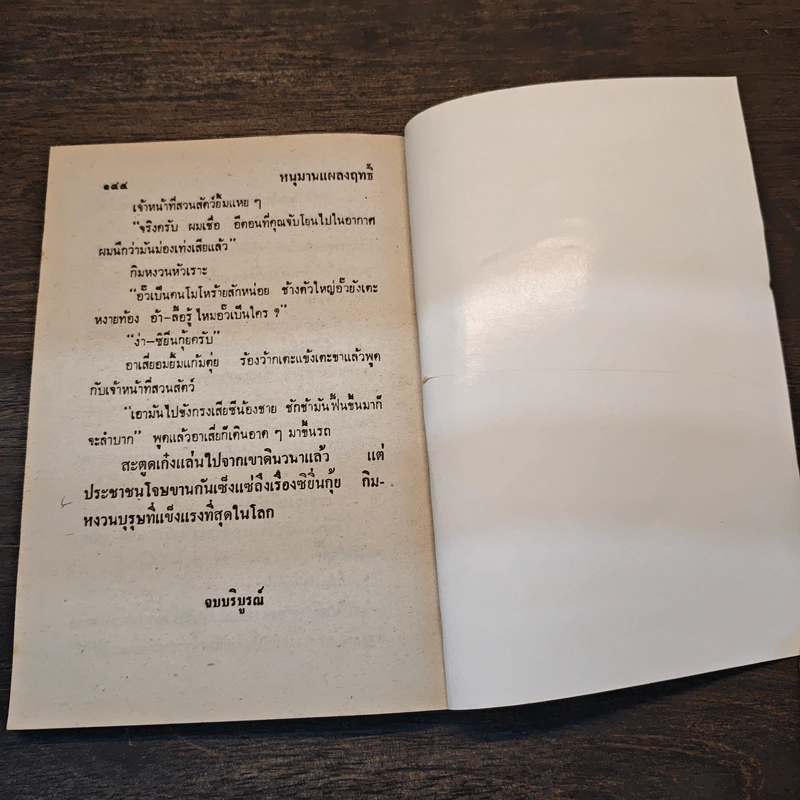 ๑๔๔ หนุมานแผลงฤทธิ์
เจ้าหน้าที่สวนสัตว์ยิ้มแหย ๆ
“จริงครับ ผมเชื่อ อีตอนที่คุณจับโยนไปในอากาศ
ผมนึกว่ามันม่องเท่งเสียแล้ว”
กิมหงวนหัวเราะ
“อั๊วเป็นคนโมโหร้ายสักหน่อย ช้างตัวใหญ่อั๊วยังเตะ
หงายท้อง อ้า–ลื้อรู้ไหมอั๊วเป็นใคร ?”
“ง่า–ซิยิ่นกุ้ยครับ”
อาเสี่ยอมยิ้มแก้มตุ่ย ร้องว้ากเตะแข้งเตะขาแล้วพูด
กับเจ้าหน้าที่สวนสัตว์
“เอามันไปขังกรงเสียซีน้องชาย ชักช้ามันฟื้นขึ้นมาก็
จะลำบาก” พูดแล้วอาเสี่ยก็เดินอาด ๆ มาขึ้นรถ
สะตูดเก๋งแล่นไปจากเขาดินวนาแล้ว แต่
ประชาชนโจษขานกันเซ็งแซ่ถึงเรื่องซิยิ่นกุ้ย กิม-
หงวนบุรุษที่แข็งแรงที่สุดในโลก
จบบริบูรณ์